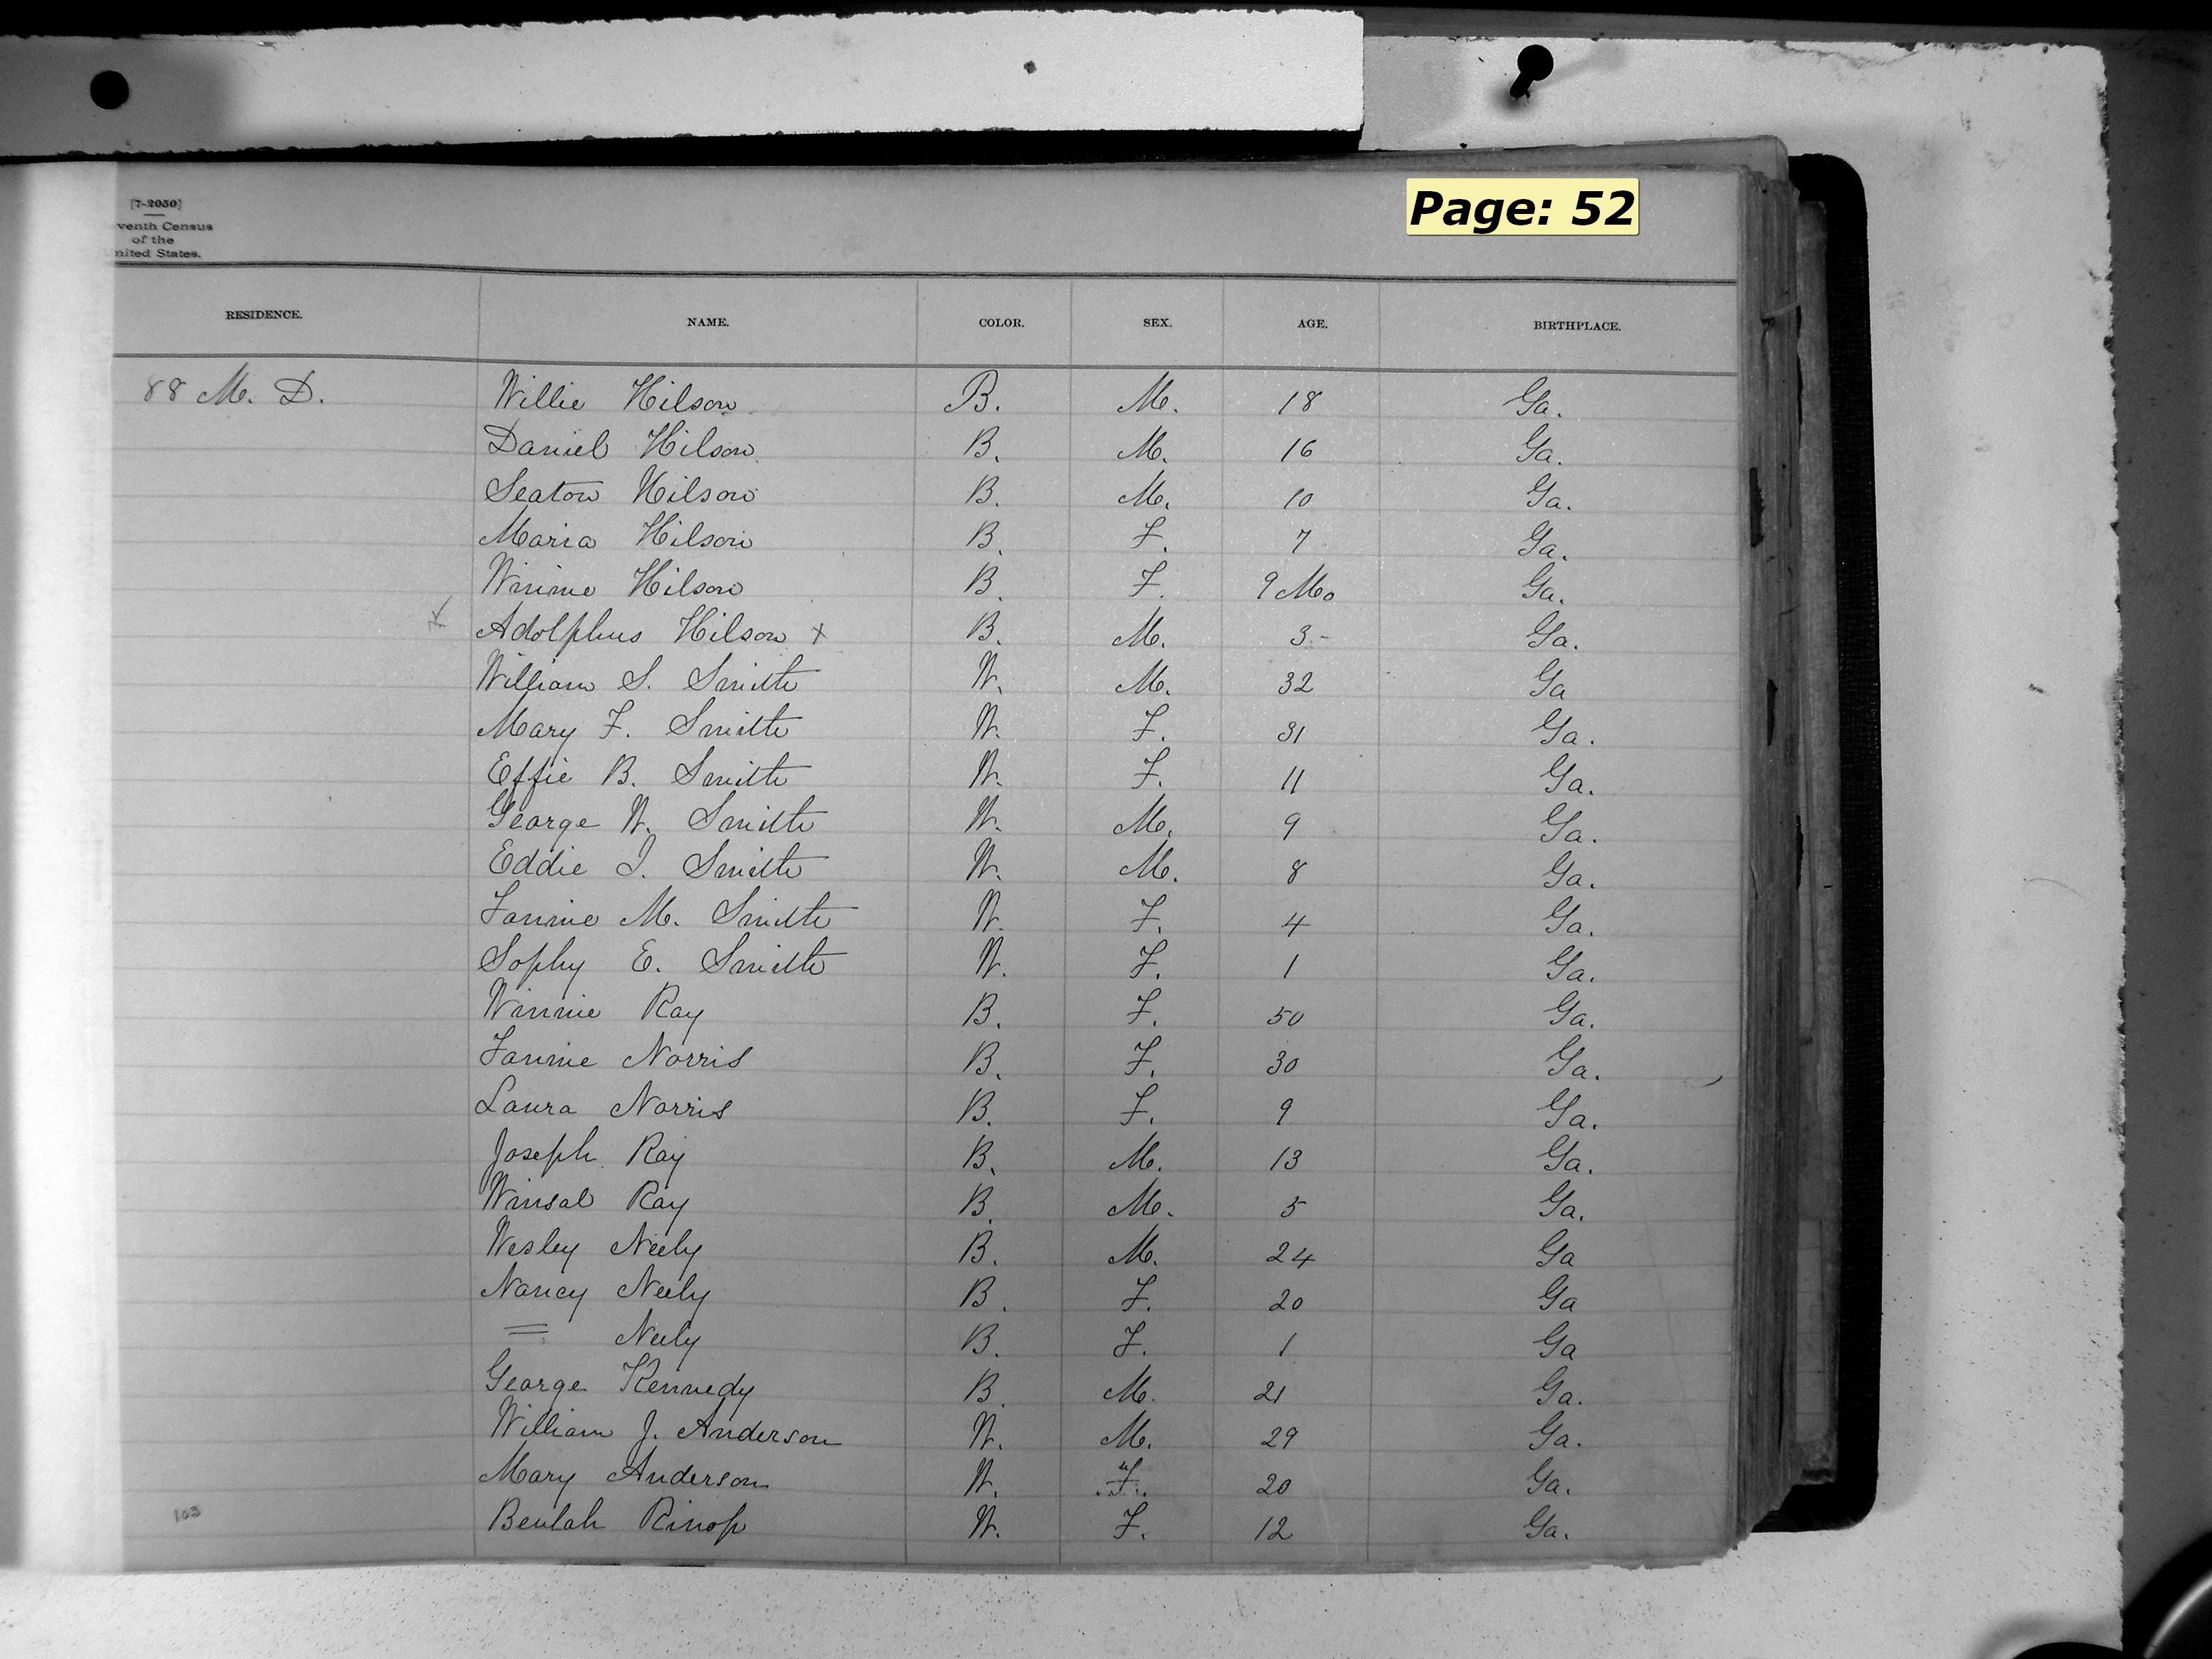 Page: 52
[7-2050]
venth Census
of the
nited States.
RESIDENCE. NAME. COLOR. SEX. AGE. BIRTHPLACE.
88 M. D. Willie Hilson B. M. 18 Ga.
Daniel Hilson B. M. 16 Ga.
Seaton Hilson B. M. 10 Ga.
Maria Hilson B. F. 7 Ga.
Winnie Hilson B. F. 9 Mo Ga.
Adolphus Hilson x B. M. 3 - Ga.
William S. Smith W. M. 32 Ga
Mary F. Smith W. F. 31 Ga.
Effie B. Smith W. F. 11 Ga.
George W. Smith W. M. 9 Ga.
Eddie I. Smith W. M. 8 Ga.
Fannie M. Smith W. F. 4 Ga.
Sophy E. Smith W. F. 1 Ga.
Winnie Ray B. F. 50 Ga.
Fannie Norris B. F. 30 Ga.
Laura Norris B. F. 9 Ga.
Joseph Ray B. M. 13 Ga.
Winsal Ray B. M. 5 Ga.
Wesley Neely B. M. 24 Ga
Nancy Neely B. F. 20 Ga
= Neely B. F. 1 Ga
George Kennedy B. M. 21 Ga.
William J. Anderson W. M. 29 Ga.
Mary Anderson W. F. 20 Ga.
103 Beulah Rinop W. F. 12 Ga.